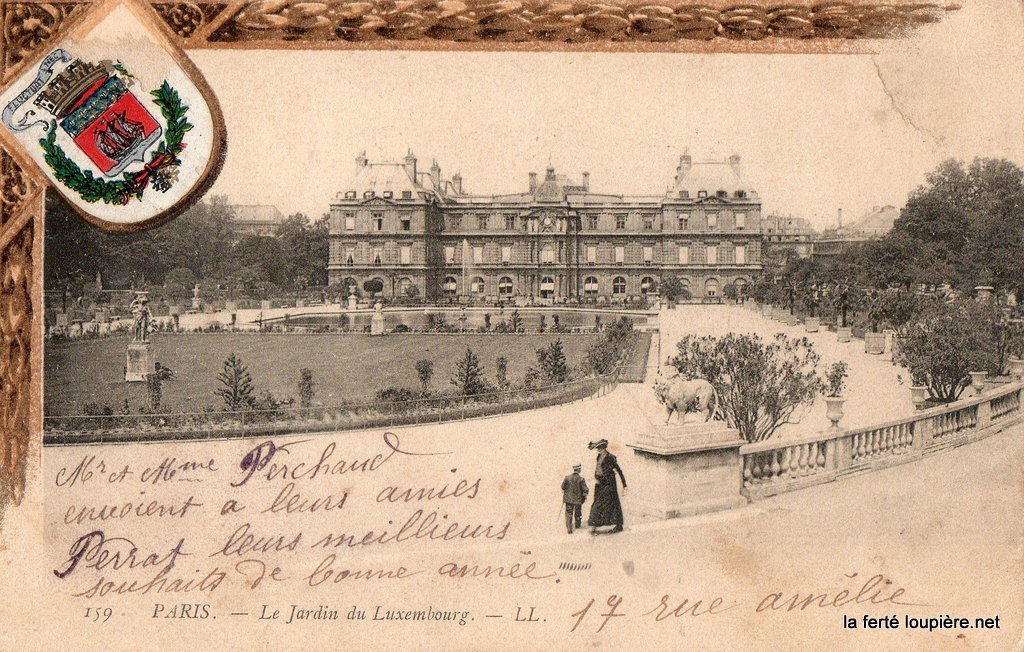 FLUCTUAT NEC
Mr et Mme Perchaud
envoient a leurs amies
Perrat leurs meillieurs
souhaits de bonne année.
159 PARIS. — Le Jardin du Luxembourg. — LL.
17 rue amélie
la ferté loupière.net